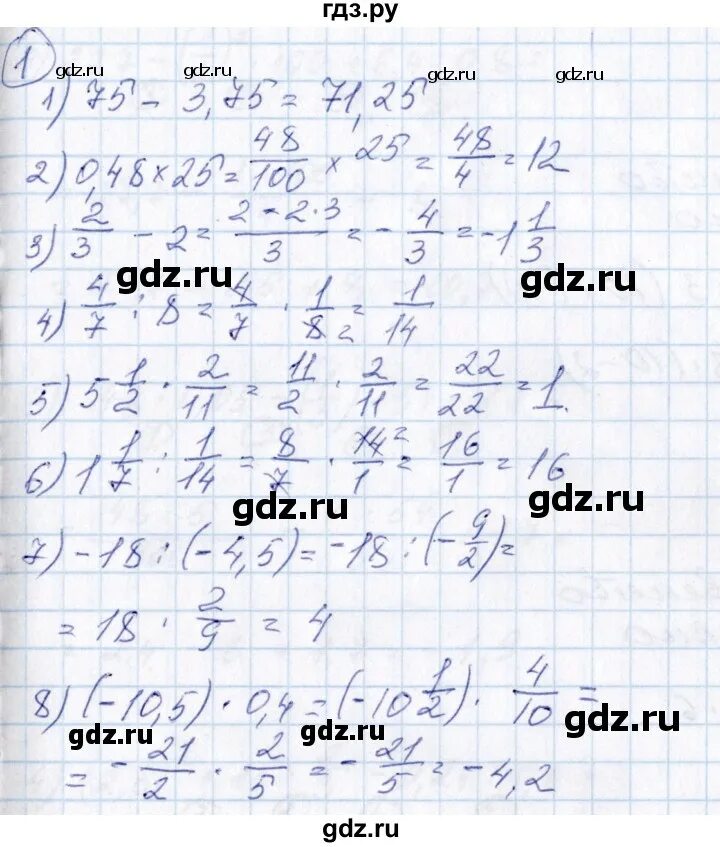 гдз.ру
1
gdz.ru gdz.ru gdz.ru gdz.ru
1) 75 - 3,75 = 71,25
2) 0,48 × 25 = 48/100 × 25 = 48/4 = 12
3) 2/3 - 2 = (2 - 2·3)/3 = - 4/3 = -1 1/3
gdz.ru gdz.ru
4) 4/7 : 8 = 4/7 · 1/8 2 = 1/14
5) 5 1/2 · 2/11 = 11/2 · 2/11 = 22/22 = 1.
6) 1 1/7 : 1/14 = 8/7 · 14 2/1 = 16/1 = 16
gdz.ru gdz.ru
7) -18 : (-4,5) = -18 : (- 9/2) =
= 18 · 2/9 = 4
8) (-10,5) · 0,4 = (-10 1/2) · 4/10 =
gdz.ru gdz.ru gdz.ru
= - 21/2 · 2/5 = - 21/5 = -4,2
gdz.ru